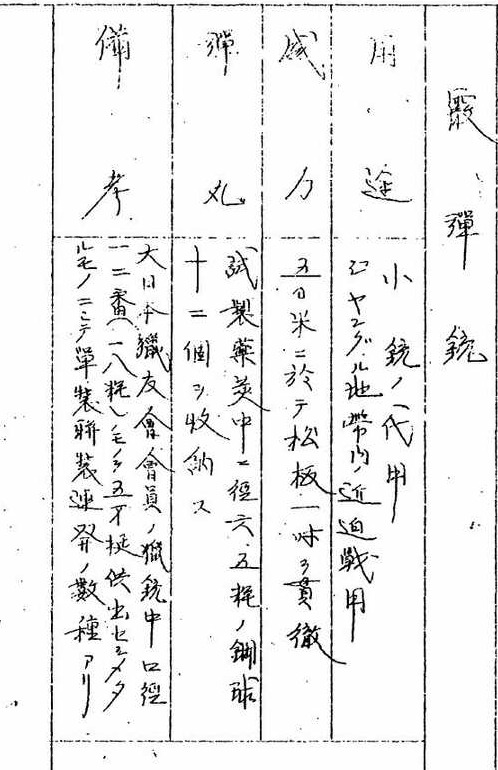 霰弾銃
用途
小銃ノ代用
ジヤングル地帯内ノ近迫戦用
威力
五〇米ニ於テ松板一吋ヲ貫徹
弾丸
試製薬莢中ニ径六.五粍ノ鋼球
十二個ヲ收納ス
備考
大日本獵友會會員ノ獵銃中口径
一二番(一八粍)ノモノヲ五万挺供出セシメタ
ルモノニシテ單装聯装連発ノ数種アリ